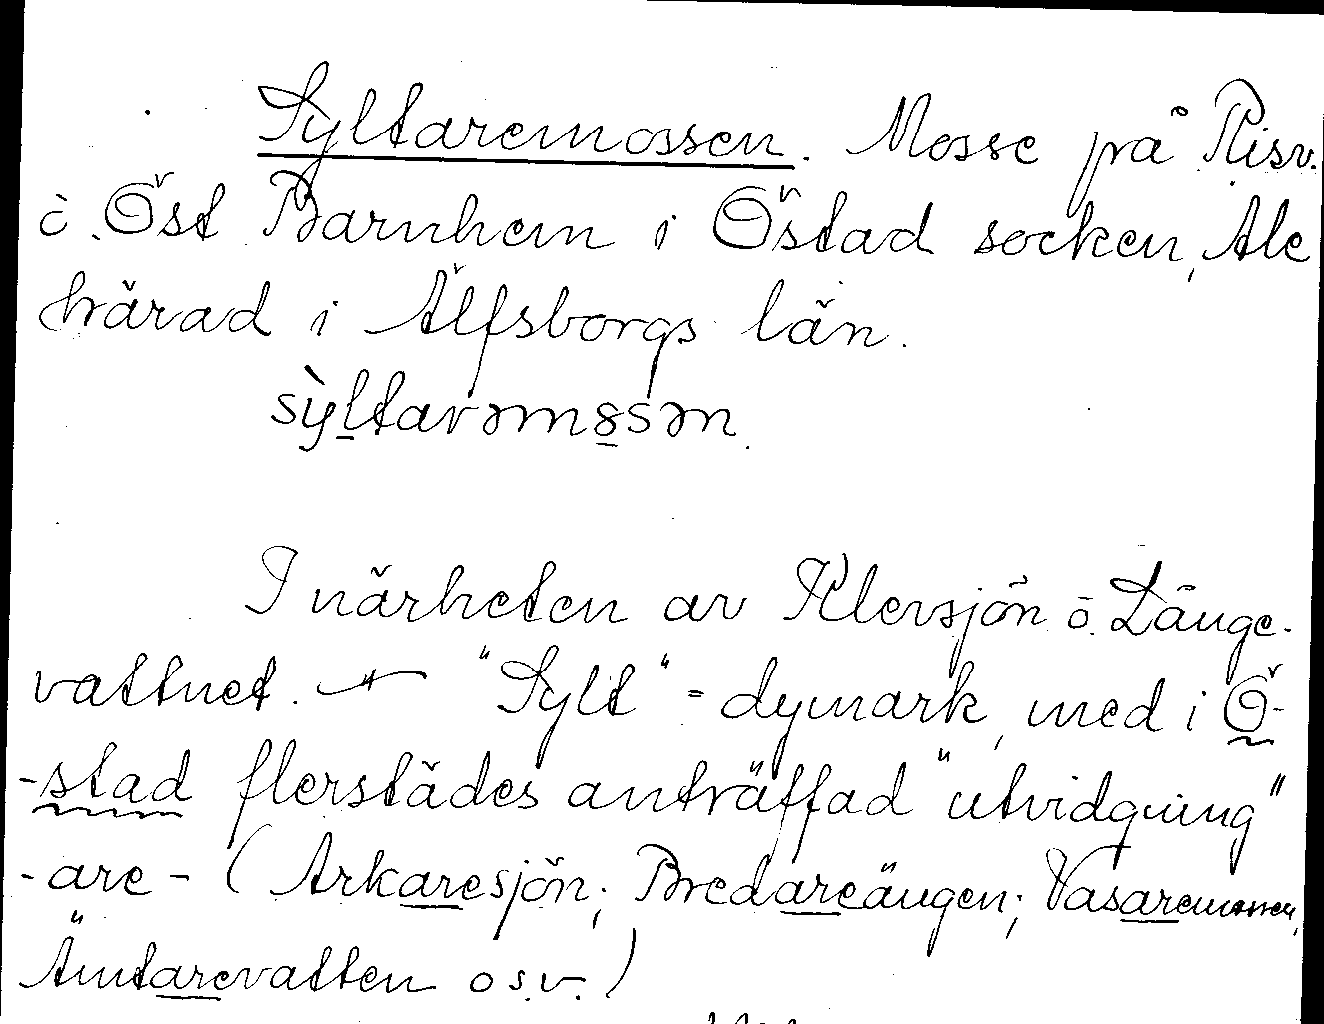 Syltaremossen. Mosse på Risv.
o. Öst Barnhem i Östad socken, Ale
härad i Älfsborgs län.
sỳltarəmåssən.
I närheten av Klersjön o. Långe-
vattnet. — "Sylt" = dymark, med i Ö-
-stad flerstädes anträffad "utvidgning"
-are- (Arkaresjön; Bredareängen; Vasaremossen,
Ämtarevatten o s.v.)